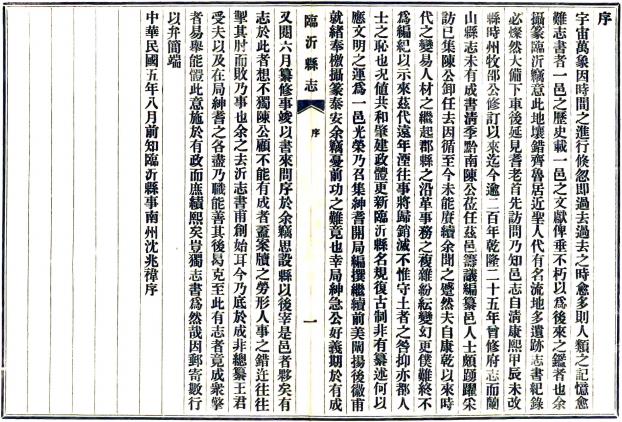 序
宇宙萬象因時間之進行倏忽即過去過去之時愈多則人類之記憶愈
難志書者一邑之歷史載一邑之文獻俾垂不朽以爲後來之鑑者也余
攝篆臨沂竊意此地壤錯齊魯居近聖人代有名流地多遺跡志書紀錄
必燦然大備下車後延見耆老首先訪問乃知邑志自清康熙甲辰未改
縣時州牧邵公修訂以來迄今逾二百年乾隆二十五年曾修府志而蘭
山縣志未有成書清季黔南陳公莅任茲邑籌議編纂邑人士頗踴躍采
訪已集陳公卸任去因循至今未能賡續余聞之蹙然夫自康乾以來時
代之變易人材之繼起郡縣之沿革事務之複雜紛紜變幻更僕難終不
爲編紀以示來茲代遠年湮往事將歸銷滅不惟守土者之咎抑亦都人
士之恥也况値共和肇建政體更新臨沂縣名規復古制非有纂述何以
臨沂縣志 序 一
應文明之運爲一邑光榮乃召集紳耆開局編撰繼續前美闡揚後徽甫
就緒奉檄攝篆泰安余竊憂前功之難竟也幸局紳急公好義期於有成
又閱六月纂修事竣以書來問序於余竊思設縣以後宰是邑者夥矣有
志於此者想不獨陳公顧不能有成者蓋案牘之勞形人事之錯迕往往
掣其肘而敗乃事也余之去沂志書甫創始耳今乃底於成非總纂王君
受夫以及在局紳耆之各盡乃職能善其後曷克至此有志者竟成衆擎
者易舉能體此意施於有政而庶績熙矣豈獨志書爲然哉因郵寄數行
以弁簡端
中華民國五年八月前知臨沂縣事南州沈兆禕序